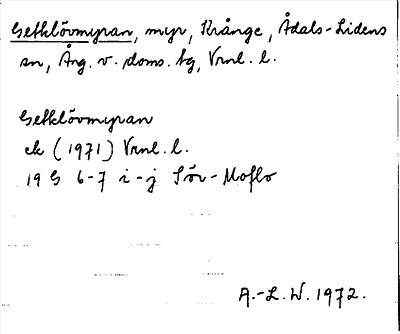 Getklövmyran, myr, Krånge, Ådals-Lidens
sn, Ång. v. doms. tg, Vrnl. l.
Getklövmyran
ek (1971) Vrnl. l.
19 G 6-7 i-j Sör-Moflo
A.-L. W. 1972.